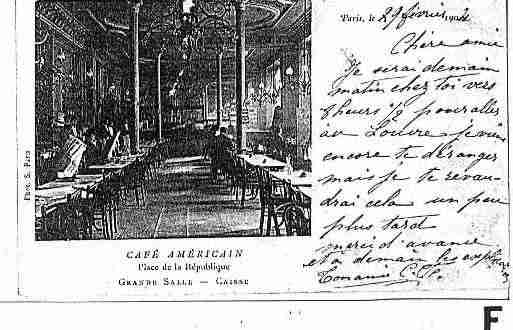 Paris, le 29 février 1904
Chère amie
Je serai demain
matin chez toi vers
8 heures 1/2 pour aller
au Louvre je viens
encore te déranger
mais je te revau-
drai cela un peu
plus tard
merci d'avance
et à demain
Ton amie C.
Phot. S. Paris
CAFÉ AMÉRICAIN
Place de la République
GRANDE SALLE — CAISSE
F